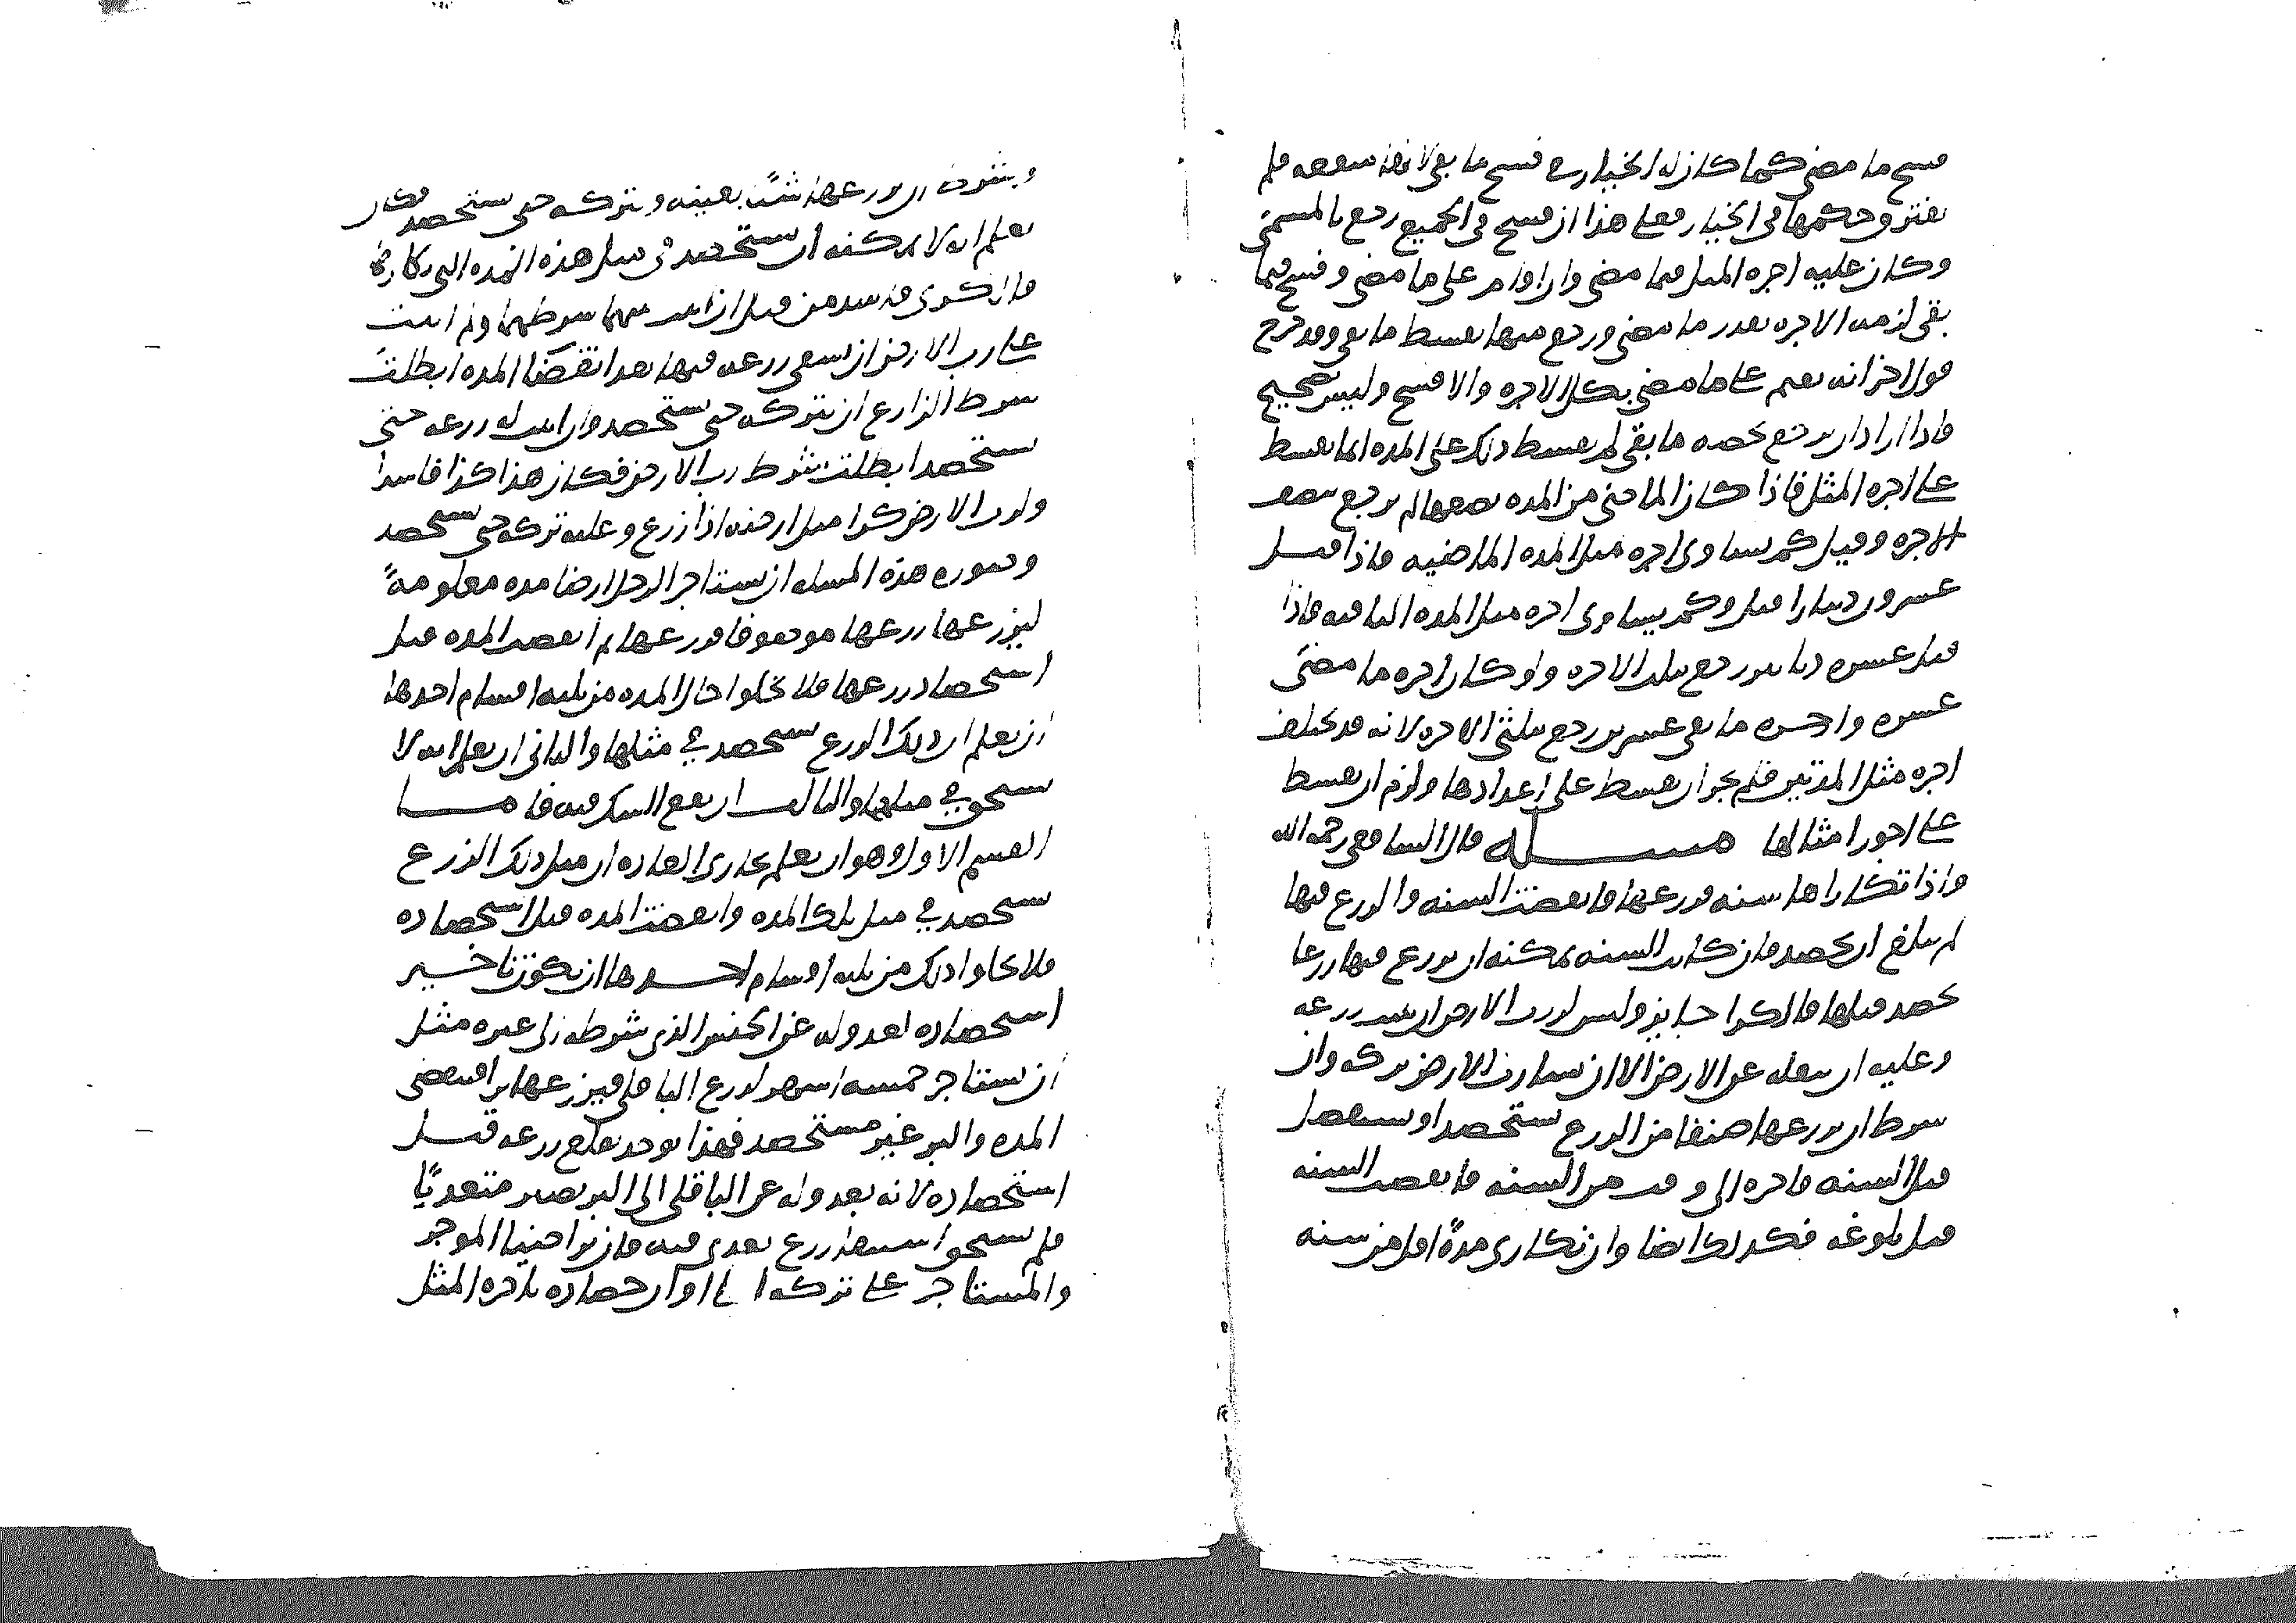 فسخ ما مضى كما كان له الخيار في فسخ ما بقي لانها صفقه فلم
يفترق حكمها في الخيار فعلى هذا ان فسخ في الجميع رجع بالمسمى
وكان عليه اجره المثل فيما مضى وان اقام على ما مضى وفسخ فيما
بقي لزمه من الاجره بقدر ما مضى ورجع منها بقسط ما بقي وقد خرج
قول اخر انه يقيم على ما مضى بكل الاجره والا فسخ وليس بصحيح
فاذا اراد ان يرجع بحصه ما بقي لم يقسط ذلك على المده انما يقسط
على اجره المثل فاذا كان الماضي من المده نصفها لم يرجع بنصف
الاجره وقيل كم يساوي اجره مثل المده الماضيه فاذا قيل
عشرون دينارا قيل وكم يساوي اجره مثل المده الباقيه فاذا
قيل عشره دنانير رجع بثلث الاجره ولو كان اجره ما مضى
عشره واجره ما بقي عشرين رجع بثلثي الاجره لانه قد تختلف
اجره مثل المدتين فلم يجز ان يقسط على اعدادها ولزم ان يقسط
على اجور امثالها مسله قال الشافعي رحمه الله
واذا تكاراها سنه فزرعها فانقضت السنه والزرع فيها
لم يبلغ ان يحصد فان كانت السنه يمكنه ان يزرع فيها زرعا
يحصد قبلها فالكرا جايز وليس لرب الارض ان يثبت زرعه
وعليه ان ينقله عن الارض الا ان يشا رب الارض تركه وان
شرط ان يزرعها صنفا من الزرع يستحصد او يستقصل
قبل السنه فاخره الى وقت من السنه فانقضت السنه
قبل بلوغه فكذلك ايضا وان تكارى مدة اقل من سنه
وشرط ان يزرعها شيئا بعينه ويتركه حتى يستحصد فكان
يعلم انه لا يمكنه ان يستحصد في مثل هذه المده التي تكاراها
فالكرى فاسد من قبل ان اثبت بينهما شرطهما ولم اثبت
على رب الارض ان يبقي زرعه فيها بعد انقضا المده ابطلت
شرط الزارع ان يتركه حتى يستحصد وان اثبت له زرعه حتى
يستحصد ابطلت شرط رب الارض فكان هذا كرا فاسدا
ولرب الارض كرا مثل ارضه اذا زرع وعليه تركه حتى يستحصد
وصوره هذه المسله ان يستاجر الرجل ارضا مده معلومة
ليزرعها زرعها موصوفا فزرعها ثم انقضت المده قبل
استحصاد زرعها فلا يخلوا حال المده من ثلثه اقسام احدها
ان يعلم ان ذلك الزرع يستحصد في مثلها والثاني ان يعلم انه لا
يستحصد في مثلها والثالث ان يقع الشك فيه فاما
القسم الاول وهو ان يعلم بجاري العاده ان مثل ذلك الزرع
يستحصد في مثل تلك المده وانقضت المده قبل استحصاده
فلا يخلوا ذلك من ثلثه اقسام احدها ان يكون تاخير
استحصاده لعدوله عن الجنس الذي شرطه الى غيره مثل
ان يستاجر خمسه اشهر لزرع الباقلى فيزرعها برا فتنقضي
المده والبر غير مستحصد فهذا يوخذ بقلع زرعه قبل
استحصاده لانه بعدوله عن الباقلى الى البر يصير متعديا
فلم يستحق استبقا زرع تعدى فيه فان تراضيا الموجر
والمستاجر على تركه الى اوان حصاده باجره المثل